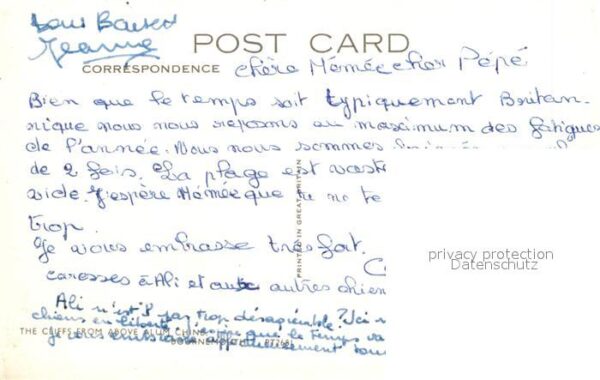 Bons Baisers
Jeanne
POST CARD
CORRESPONDENCE
chère Mémée cher Pépé
Bien que le temps soit typiquement Britan-
nique nous nous reposons au maximum des fatigues
de l'année. Nous nous sommes
de 2 fois. La plage est vaste
vide. J'espère Mémée que tu ne te
trop.
Je vous embrasse très fort.
caresses à Ali et aux autres chien
Ali n'est pas trop désagréable? Ici
chiens en liberté que le temps va
je vous embrasse affectueusement
THE CLIFFS FROM ABOVE ALUM CHINE
BOURNEMOUTH
PRINTED IN GREAT BRITAIN
privacy protection
Datenschutz